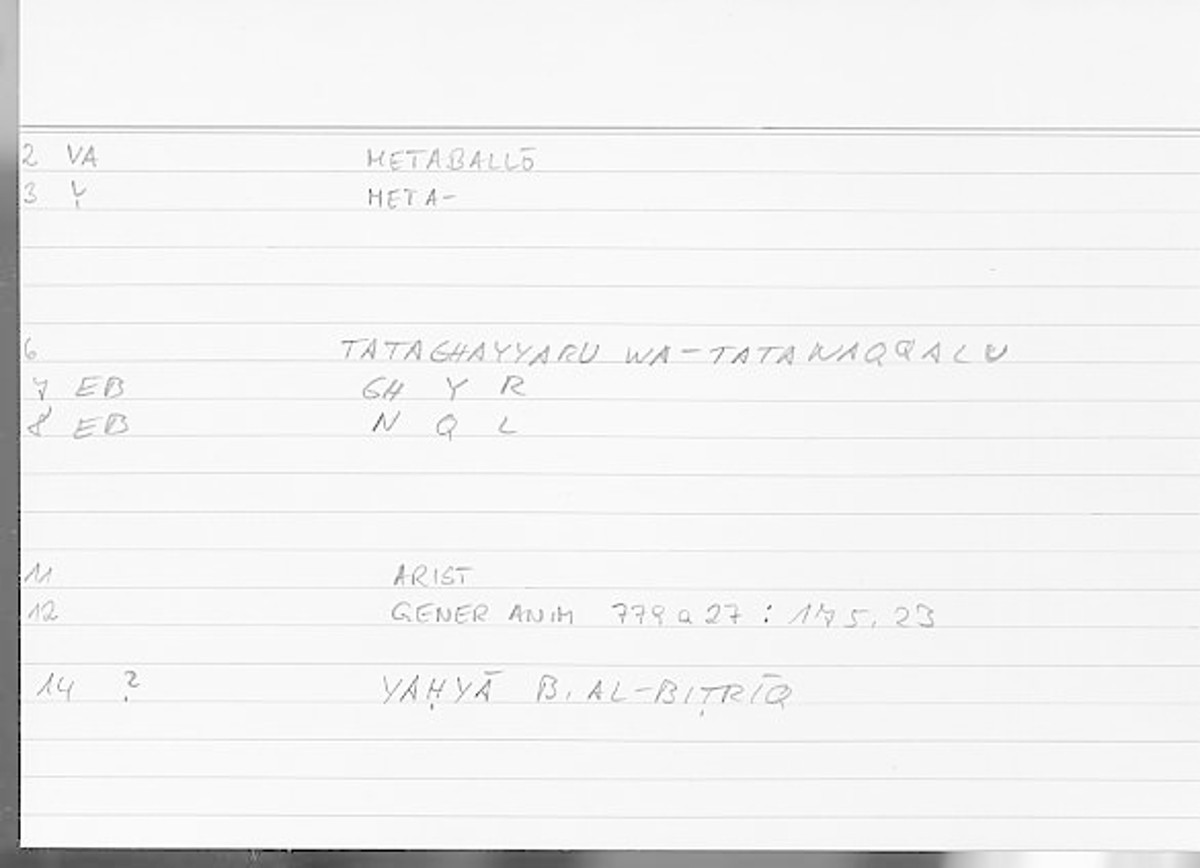 2 VA METABALLŌ
3 Ṿ META-
6 TATAGHAYYARU WA-TATANAQQALU
7 EB GH Y R
8 EB N Q L
11 ARIST
12 GENER ANIM 779a27 : 175,23
14 ? YAḤYĀ B. AL-BIṬRĪQ